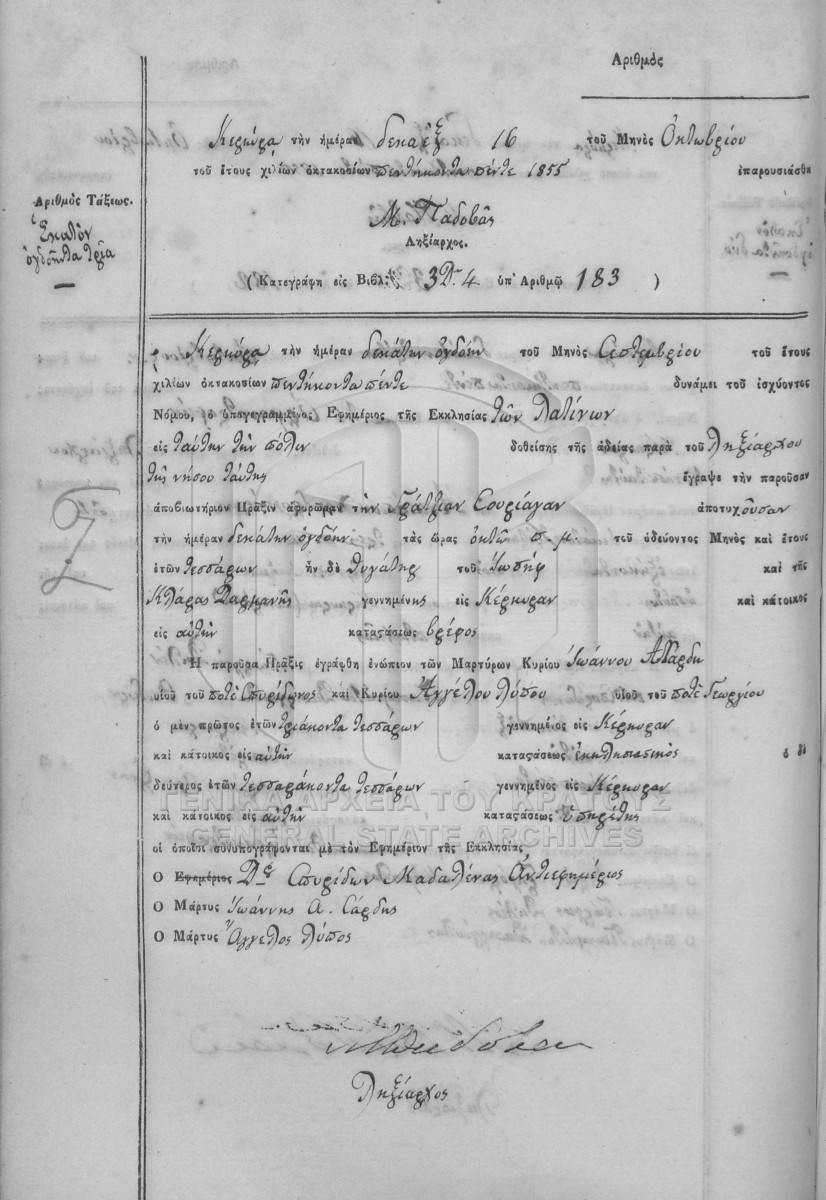 Ἀριθμὸς
Κερκύρα τὴν ἡμέραν δεκαὲξ 16 τοῦ Μηνὸς Ὀκτωβρίου
τοῦ ἔτους χιλίων ὀκτακοσίων πεντήκοντα πέντε 1855 ἐπαρουσιάσθη
Ἀριθμὸς Τάξεως.
Ἑκατὸν
ὀγδοῆντα τρία
Μ. Παδοβᾶς
Ληξίαρχος.
(Κατεγράφη εἰς Βιβλ: 3 4 ὑπ' Ἀριθμῷ 183 )
Κερκύρα τὴν ἡμέραν δεκάτην ὀγδόην τοῦ Μηνὸς Σεπτεμβρίου τοῦ ἔτους
χιλίων ὀκτακοσίων πεντήκοντα πέντε δυνάμει τοῦ ἰσχύοντος
Νόμου, ὁ ὑπογεγραμμένος Ἐφημέριος τῆς Ἐκκλησίας τῶν Λατίνων
εἰς ταύτην τὴν πόλιν δοθείσης τῆς ἀδείας παρὰ τοῦ Ληξιάρχου
τῆς νήσου ταύτης ἔγραψε τὴν παροῦσαν
ἀποβιωτήριον Πρᾶξιν ἀφορῶσαν τὴν Γράτζιαν Σουριάγαν ἀποτυχοῦσαν
τὴν ἡμέραν δεκάτην ὀγδόην τὰς ὥρας ὀκτὼ π. μ. τοῦ ὁδεύοντος Μηνὸς καὶ ἔτους
ἐτῶν τεσσάρων ἦν δὲ θυγάτηρ τοῦ Ἰωσὴφ καὶ τῆς
Κλάρας Δαρμανῆς γεννημένης εἰς Κέρκυραν καὶ κάτοικος
εἰς αὐτὴν καταςάσεως βρέφος
Ἡ παροῦσα Πρᾶξις ἐγράφθη ἐνώπιον τῶν Μαρτύρων Κυρίου Ἰωάννου
υἱοῦ τοῦ ποτὲ Σπυρίδωνος καὶ Κυρίου Ἀγγέλου Λύπου υἱοῦ τοῦ ποτὲ Γεωργίου
ὁ μὲν πρῶτος ἐτῶν τριάκοντα τεσσάρων γεννημένος εἰς Κέρκυραν
καὶ κάτοικος εἰς αὐτὴν καταςάσεως ἐκκλησιαστικὸς ὁ δὲ
δεύτερος ἐτῶν τεσσαράκοντα τεσσάρων γεννημένος εἰς Κέρκυραν
καὶ κάτοικος εἰς αὐτὴν καταςάσεως ὑπηρέτης
ΓΕΝΙΚΑ ΑΡΧΕΙΑ ΤΟΥ ΚΡΑΤΟΥΣ
GENERAL STATE ARCHIVES
οἱ ὁποῖοι συνυπογράφονται μὲ τὸν Ἐφημέριον τῆς Ἐκκλησίας
Ὁ Ἐφημέριος Σπυρίδων Μαδαλένας Ἀντιεφημέριος
Ὁ Μάρτυς Ἰωάννης Α. Σάρδης
Ὁ Μάρτυς Ἄγγελος Λύπος
Ληξίαρχος